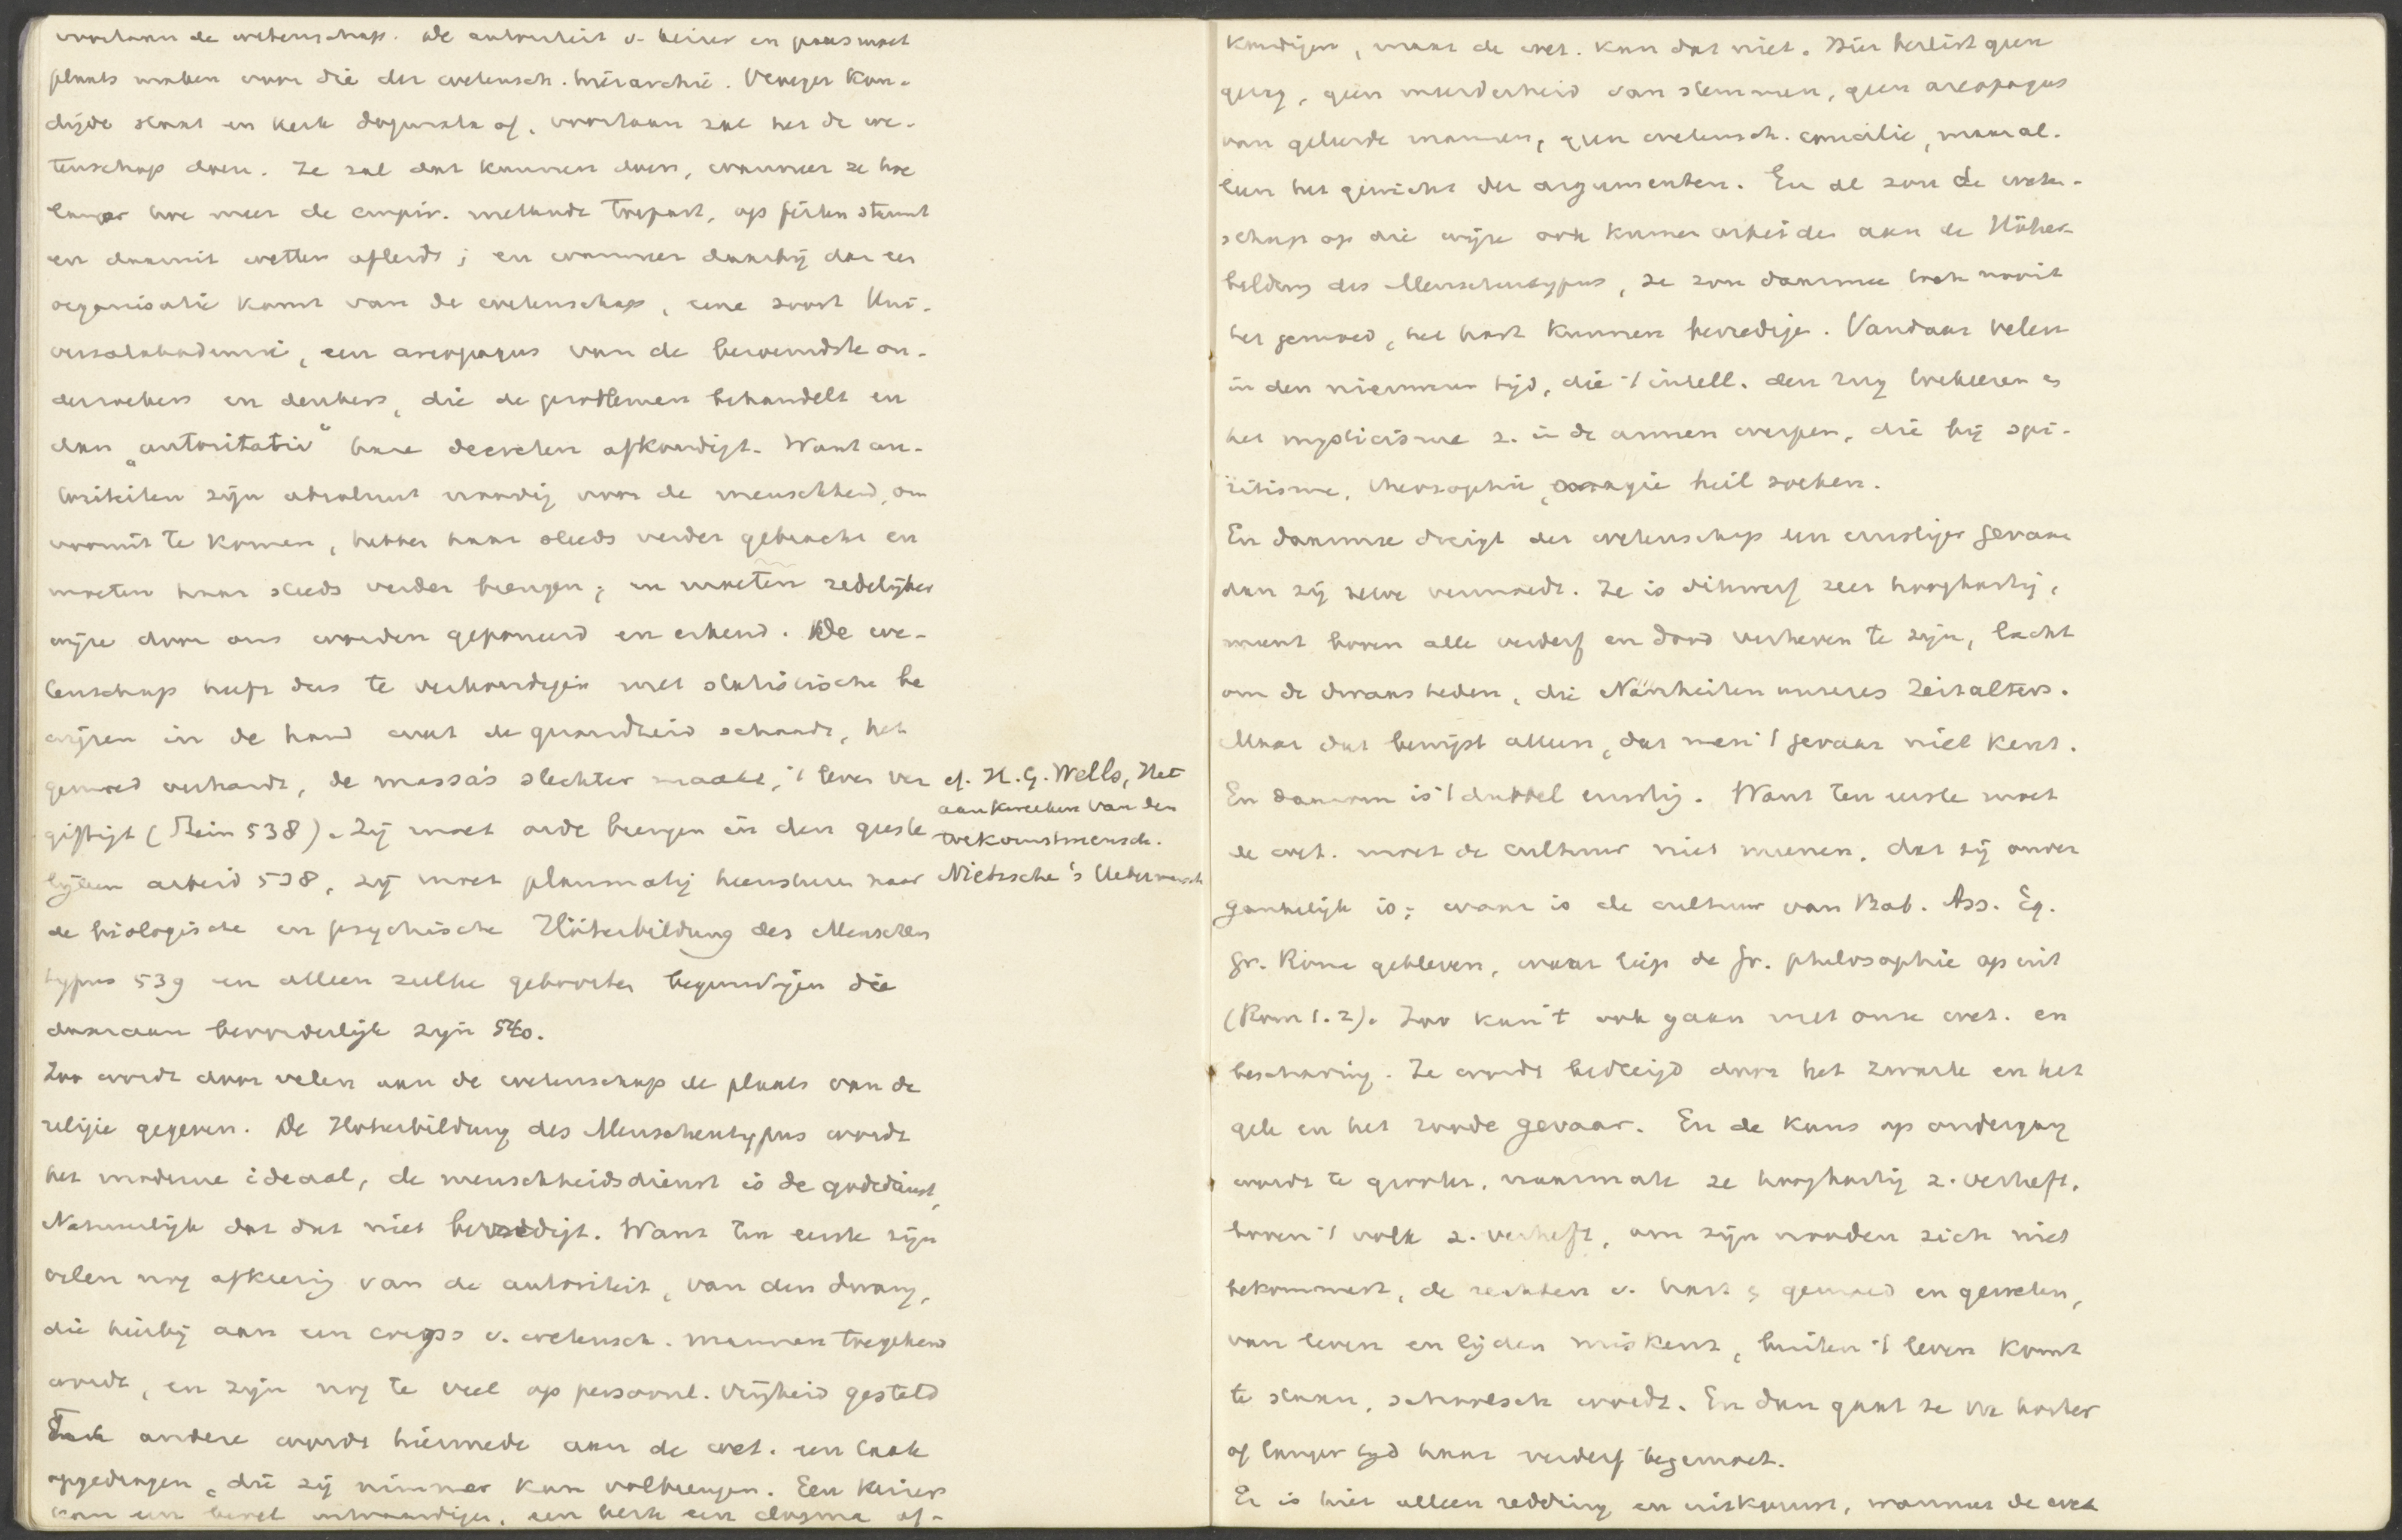 voortaan de wetenschap. De autoriteit v. keizer en paus moet
plaats maken voor die der wetensch. hierarchie. Vroeger kon-
digde staat en kerk dogmata af, voortaan zal het de we-
tenschap doen. Ze zal dat kunnen doen, wanneer ze hoe
langer hoe meer de empir. methode toepast, op feiten steunt
en daaruit wetten afleidt; en wanneer daarbij dan een
organisatie komt van de wetenschap, eene soort Uni-
versalakademie, een areopagus van de beroemdste on-
derzoekers en denkers, die de problemen behandelt en
dan „autoritativ“ hare decreten afkondigt. Want au-
toriteiten zijn absoluut noodig voor de menschheid, om
vooruit te komen, hebben haar steeds verder gebracht en
moeten haar steeds verder brengen; en moeten redelijker
wijze door ons worden geponeerd en erkend. De we-
tenschap heeft dus te verkondigen met statistische be
wijzen in de hand wat de gezondheid schaadt, het
gemoed verhardt, de massa's slechter maakt, 't leven ver
giftigt (Stein 538). Zij moet orde brengen in den geeste
lijken arbeid 538, zij moet planmatig heensturen naar
de biologische en psychische Höherbildung des Menschen
typus 539 en alleen zulke geboorten begunstigen die
daaraan bevorderlijk zijn 540.
cf. H. G. Wells, Het
aankweeken van den
toekomstmensch.
Nietzsche's Uebermensch
Zoo wordt door velen aan de wetenschap de plaats van de
religie gegeven. De Höherbildung des Menschentypus wordt
het moderne ideaal, de menschheidsdienst is de godsdienst,
Natuurlijk dat dat niet bevredigt. Want ten eerste zijn
velen nog afkeerig van de autoriteit, van den dwang,
die hierbij aan een corps v. wetensch. mannen toegekend
wordt, en zijn nog te veel op persoonl. vrijheid gesteld
Ten andere wordt hiermede aan de wet. een taak
opgedragen, die zij nimmer kan volbrengen. Een keizer
kan een bevel uitvaardigen, een kerk een dogma af-
kondigen, maar de wet. kan dat niet. Hier beslist geen
gezag, geen meerderheid van stemmen, geen areopagus
van geleerde mannen, geen wetensch. concilie, maar al-
leen het gewicht der argumenten. En al zou de weten-
schap op die wijze ook kunnen arbeiden aan de Höher
bildung des Menschentypus, ze zou daarmee toch nooit
het gemoed, het hart kunnen bevredigen. Vandaar velen
in den nieuweren tijd, die 't intell. den rug toekeeren en
het mysticisme z. in de armen werpen, die bij spi-
ritisme, theosophie, magie heil zoeken.
En daarmee dreigt der wetenschap een ernstiger gevaar
dan zij zelve vermoedt. Ze is dikwerf zeer hooghartig,
meent boven alle verderf en dood verheven te zijn, lacht
om de dwaasheden, die Narrheiten unseres Zeitalters.
Maar dat bewijst alleen, dat men 't gevaar niet kent.
En daarom is 't dubbel ernstig. Want ten eerste moet
de wet. moet de cultuur niet meenen, dat zij onver
gankelijk is; waar is de cultuur van Bab. Ass. Eg.
Gr. Rome gebleven, waar liep de Gr. philosophie op uit
(Rom 1. 2). Zoo kan 't ook gaan met onze wet. en
beschaving. Ze wordt bedreigd door het zwarte en het
gele en het roode gevaar. En de kans op ondergang
wordt te grooter, naarmate ze hooghartig z. verheft,
boven 't volk z. verheft, om zijn nooden zich niet
bekommert, de rechten v. hart en gemoed en geweten,
van leven en lijden miskent, buiten 't leven komt
te staan, schoolsch wordt. En dan gaat ze voor korter
of langer tijd haar verderf tegemoet.
Er is hier alleen redding en uitkomst, wanneer de wet